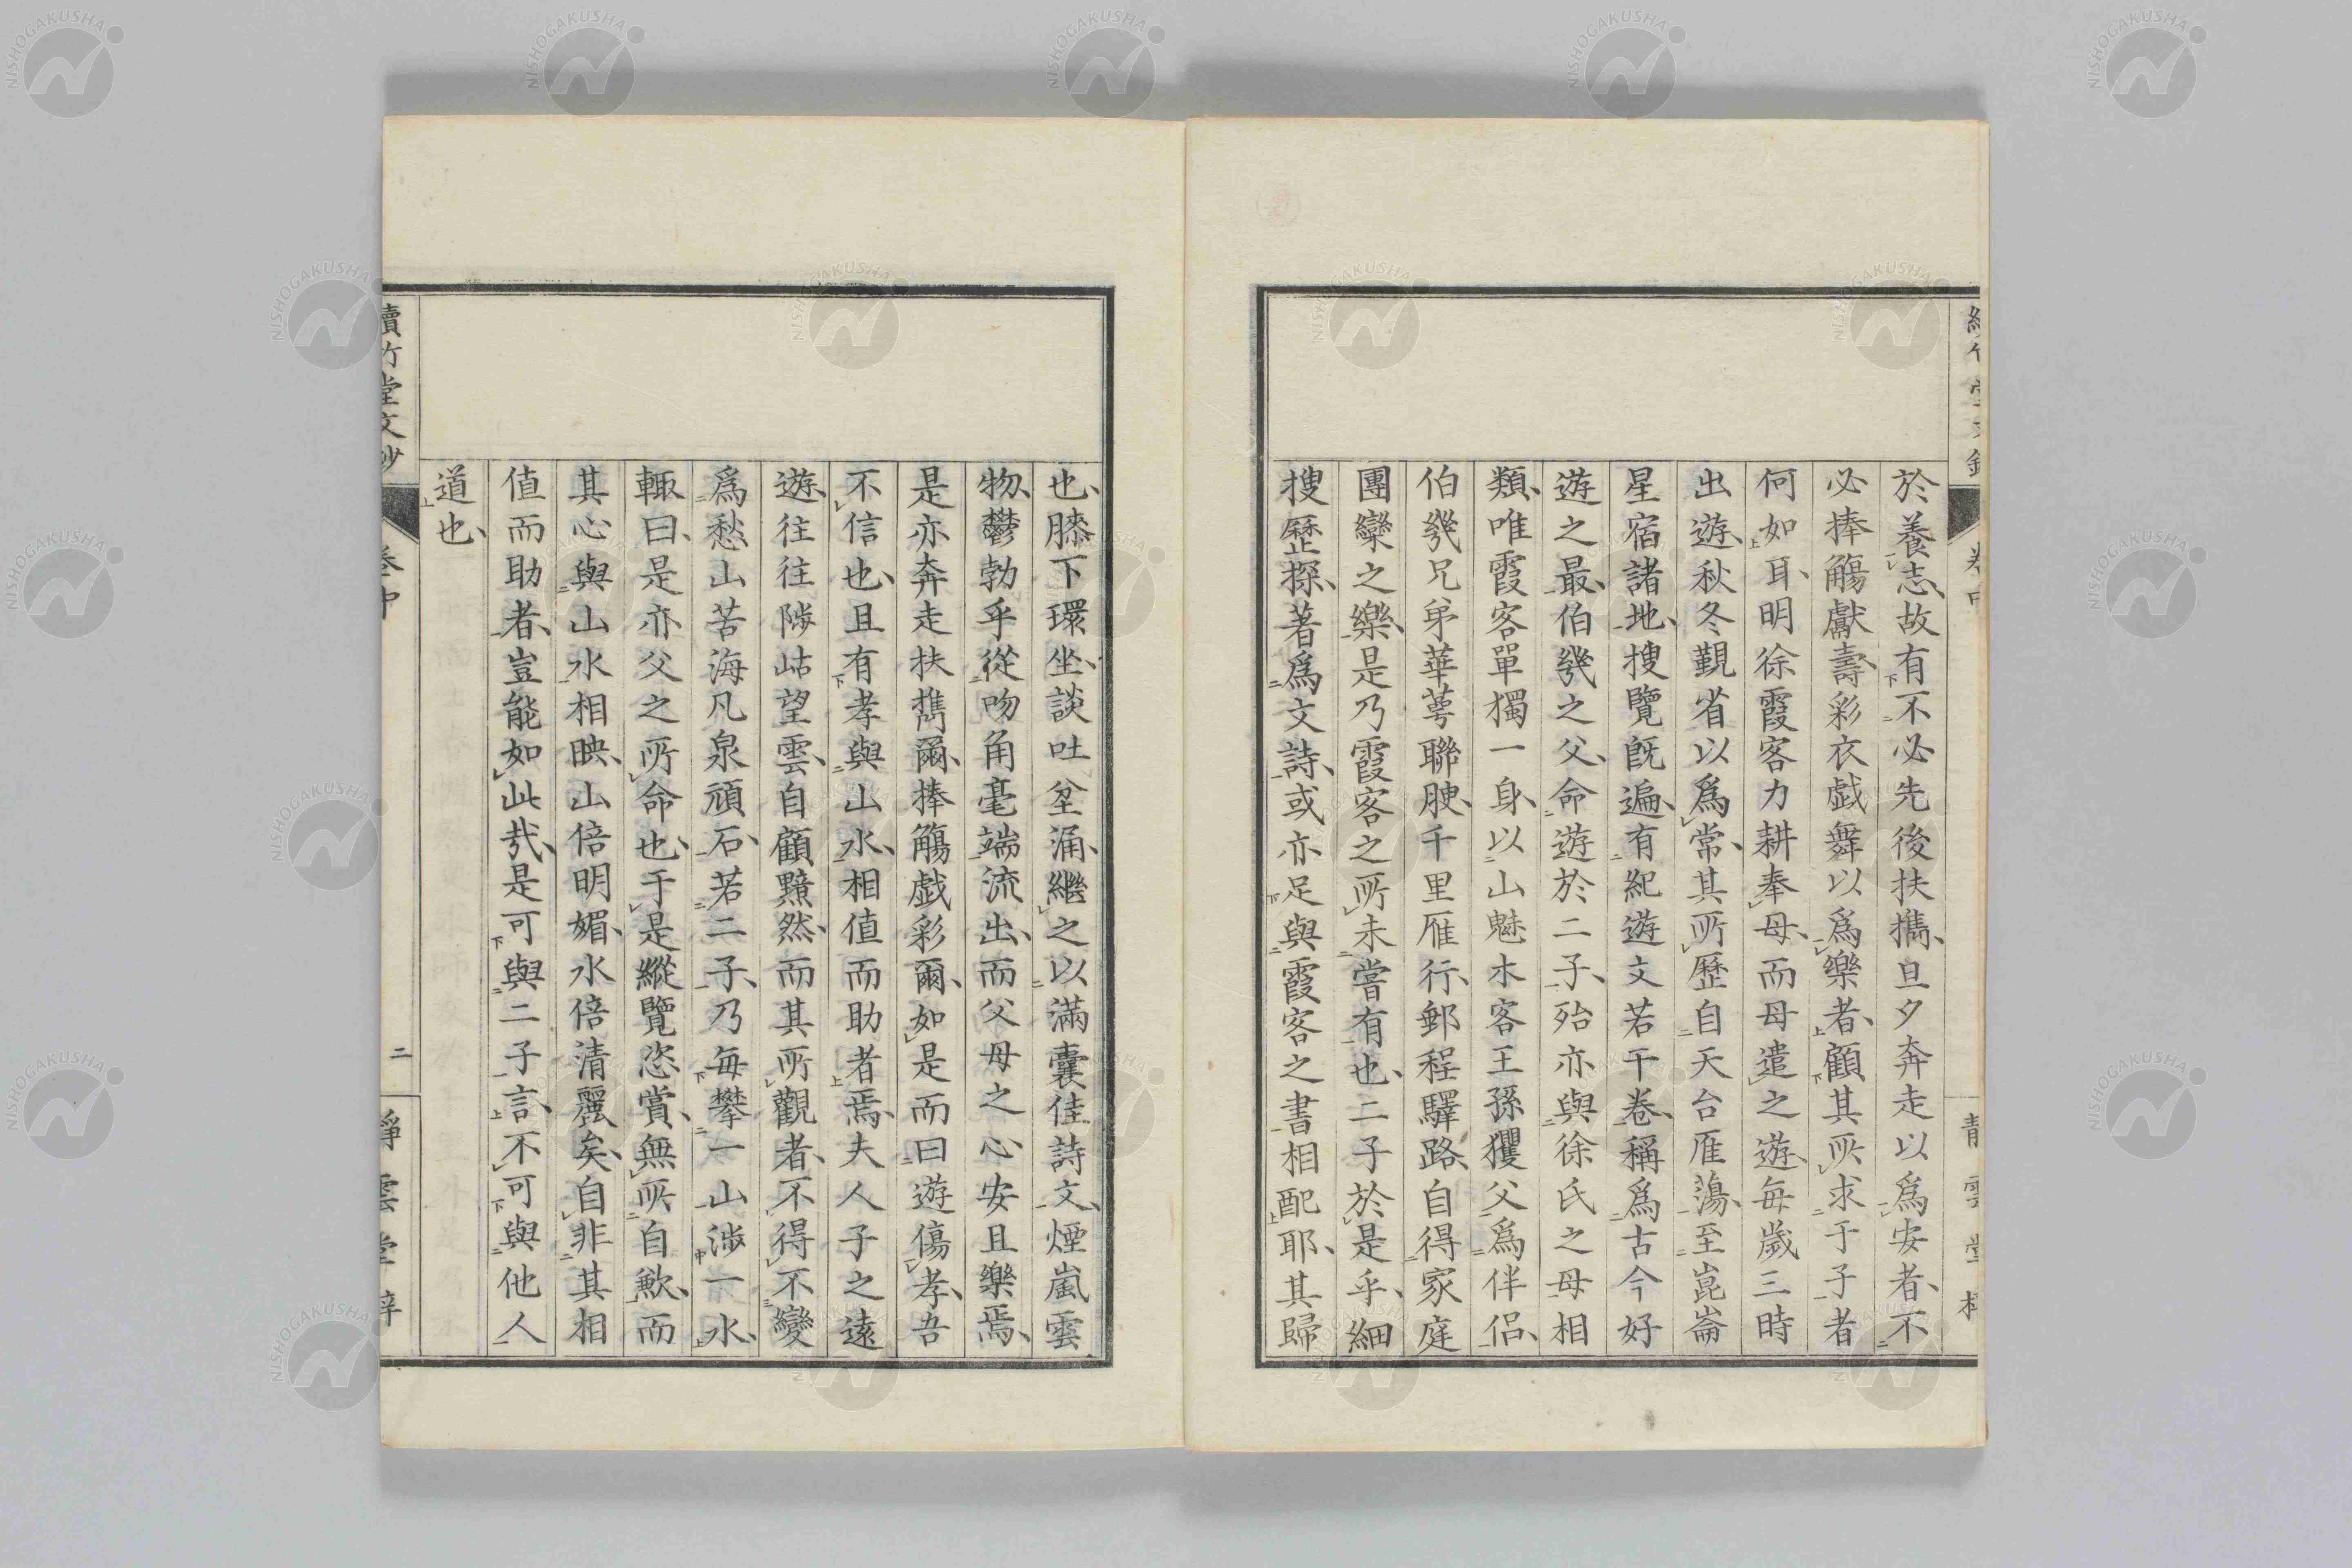 於養志、故有不必先後扶攜、旦夕奔走以爲安者、不
必捧觴獻壽、彩衣戯舞以爲樂者、顧其所求于子者
何如耳、明徐霞客力耕奉母、而母遣之遊、每歲三時
出遊、秋冬覲省以爲常、其所歷自天台雁蕩、至崑崙
星宿諸地、搜覽既遍、有紀遊文若干卷、稱爲古今好
遊之最、伯幾之父、命遊於二子、殆亦與徐氏之母相
類、唯霞客單獨一身、以山魅木客王孫玃父爲伴侶、
伯幾兄弟華萼聯腴、千里雁行、郵程驛路、自得家庭
團欒之樂、是乃霞客之所未嘗有也、二子於是乎、細
搜歷探、著爲文詩、或亦足與霞客之書相配耶、其歸
卷中
靑雲堂梓
也、膝下環坐、談吐坌涌、繼之以滿囊佳詩文、煙嵐雲
物、鬱勃乎從吻角毫端流出、而父母之心安且樂焉、
是亦奔走扶攜爾、捧觴戯彩爾、如是而曰遊傷孝、吾
不信也、且有孝與山水、相值而助者焉、夫人子之遠
遊、往往陟岵望雲、自顧黯然、而其所觀者、不得不變
爲愁山苦海凡泉頑石、若二子、乃每攀一山涉一水、
輙曰、是亦父之所命也、于是縱覽恣賞、無所自歉、而
其心與山水相映、山倍明媚、水倍清麗矣、自非其相
值而助者、豈能如此哉、是可與二子言、不可與他人
道也、
讀竹堂文鈔
卷中
二
靜雲堂梓